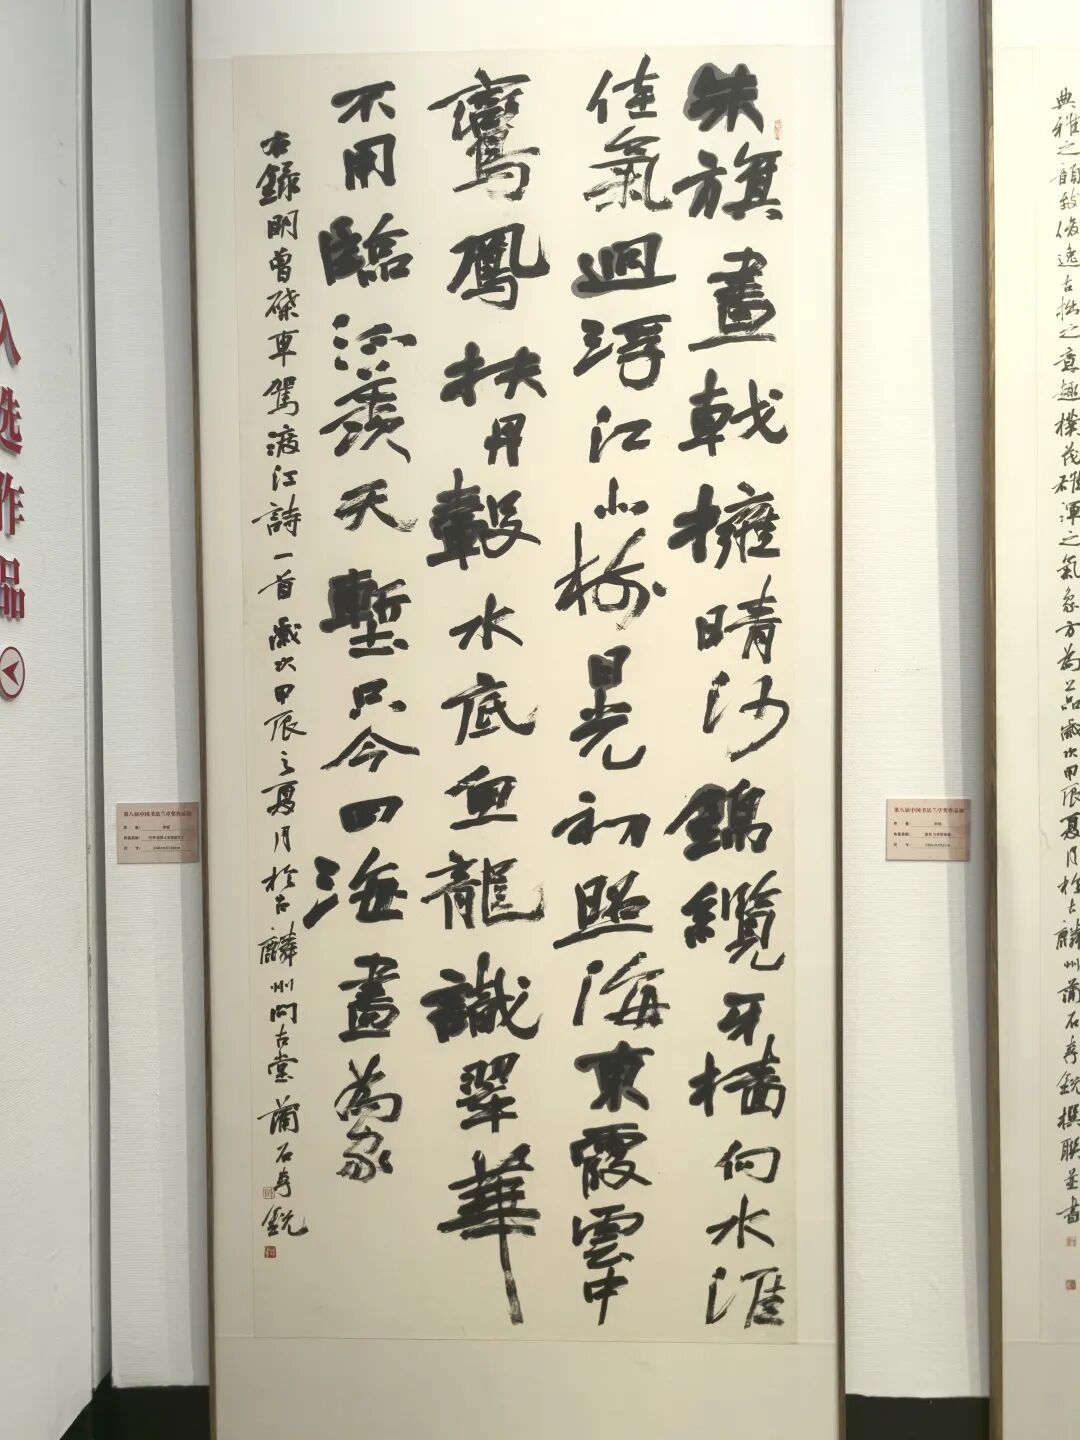 入选作品
朱旗畫戟擁晴沙錦纜牙檣向水涯
佳氣迥浮江北樹日光初照海東霞雲中
鸞鳳扶丹轂水底魚龍識翠華
不用臨流羨天塹只今四海盡為家
右錄明曾棨車駕渡江詩一首歲次甲辰之夏月於古麟州問古堂蒲石李銳
典雅之韻致俊逸古拙之意趣樸茂雄渾之氣象方為上品歲次甲辰夏月於古麟州蒲石李銳撰聯並書
第八届中国书法兰亭奖作品展
第八届中国书法兰亭奖作品展